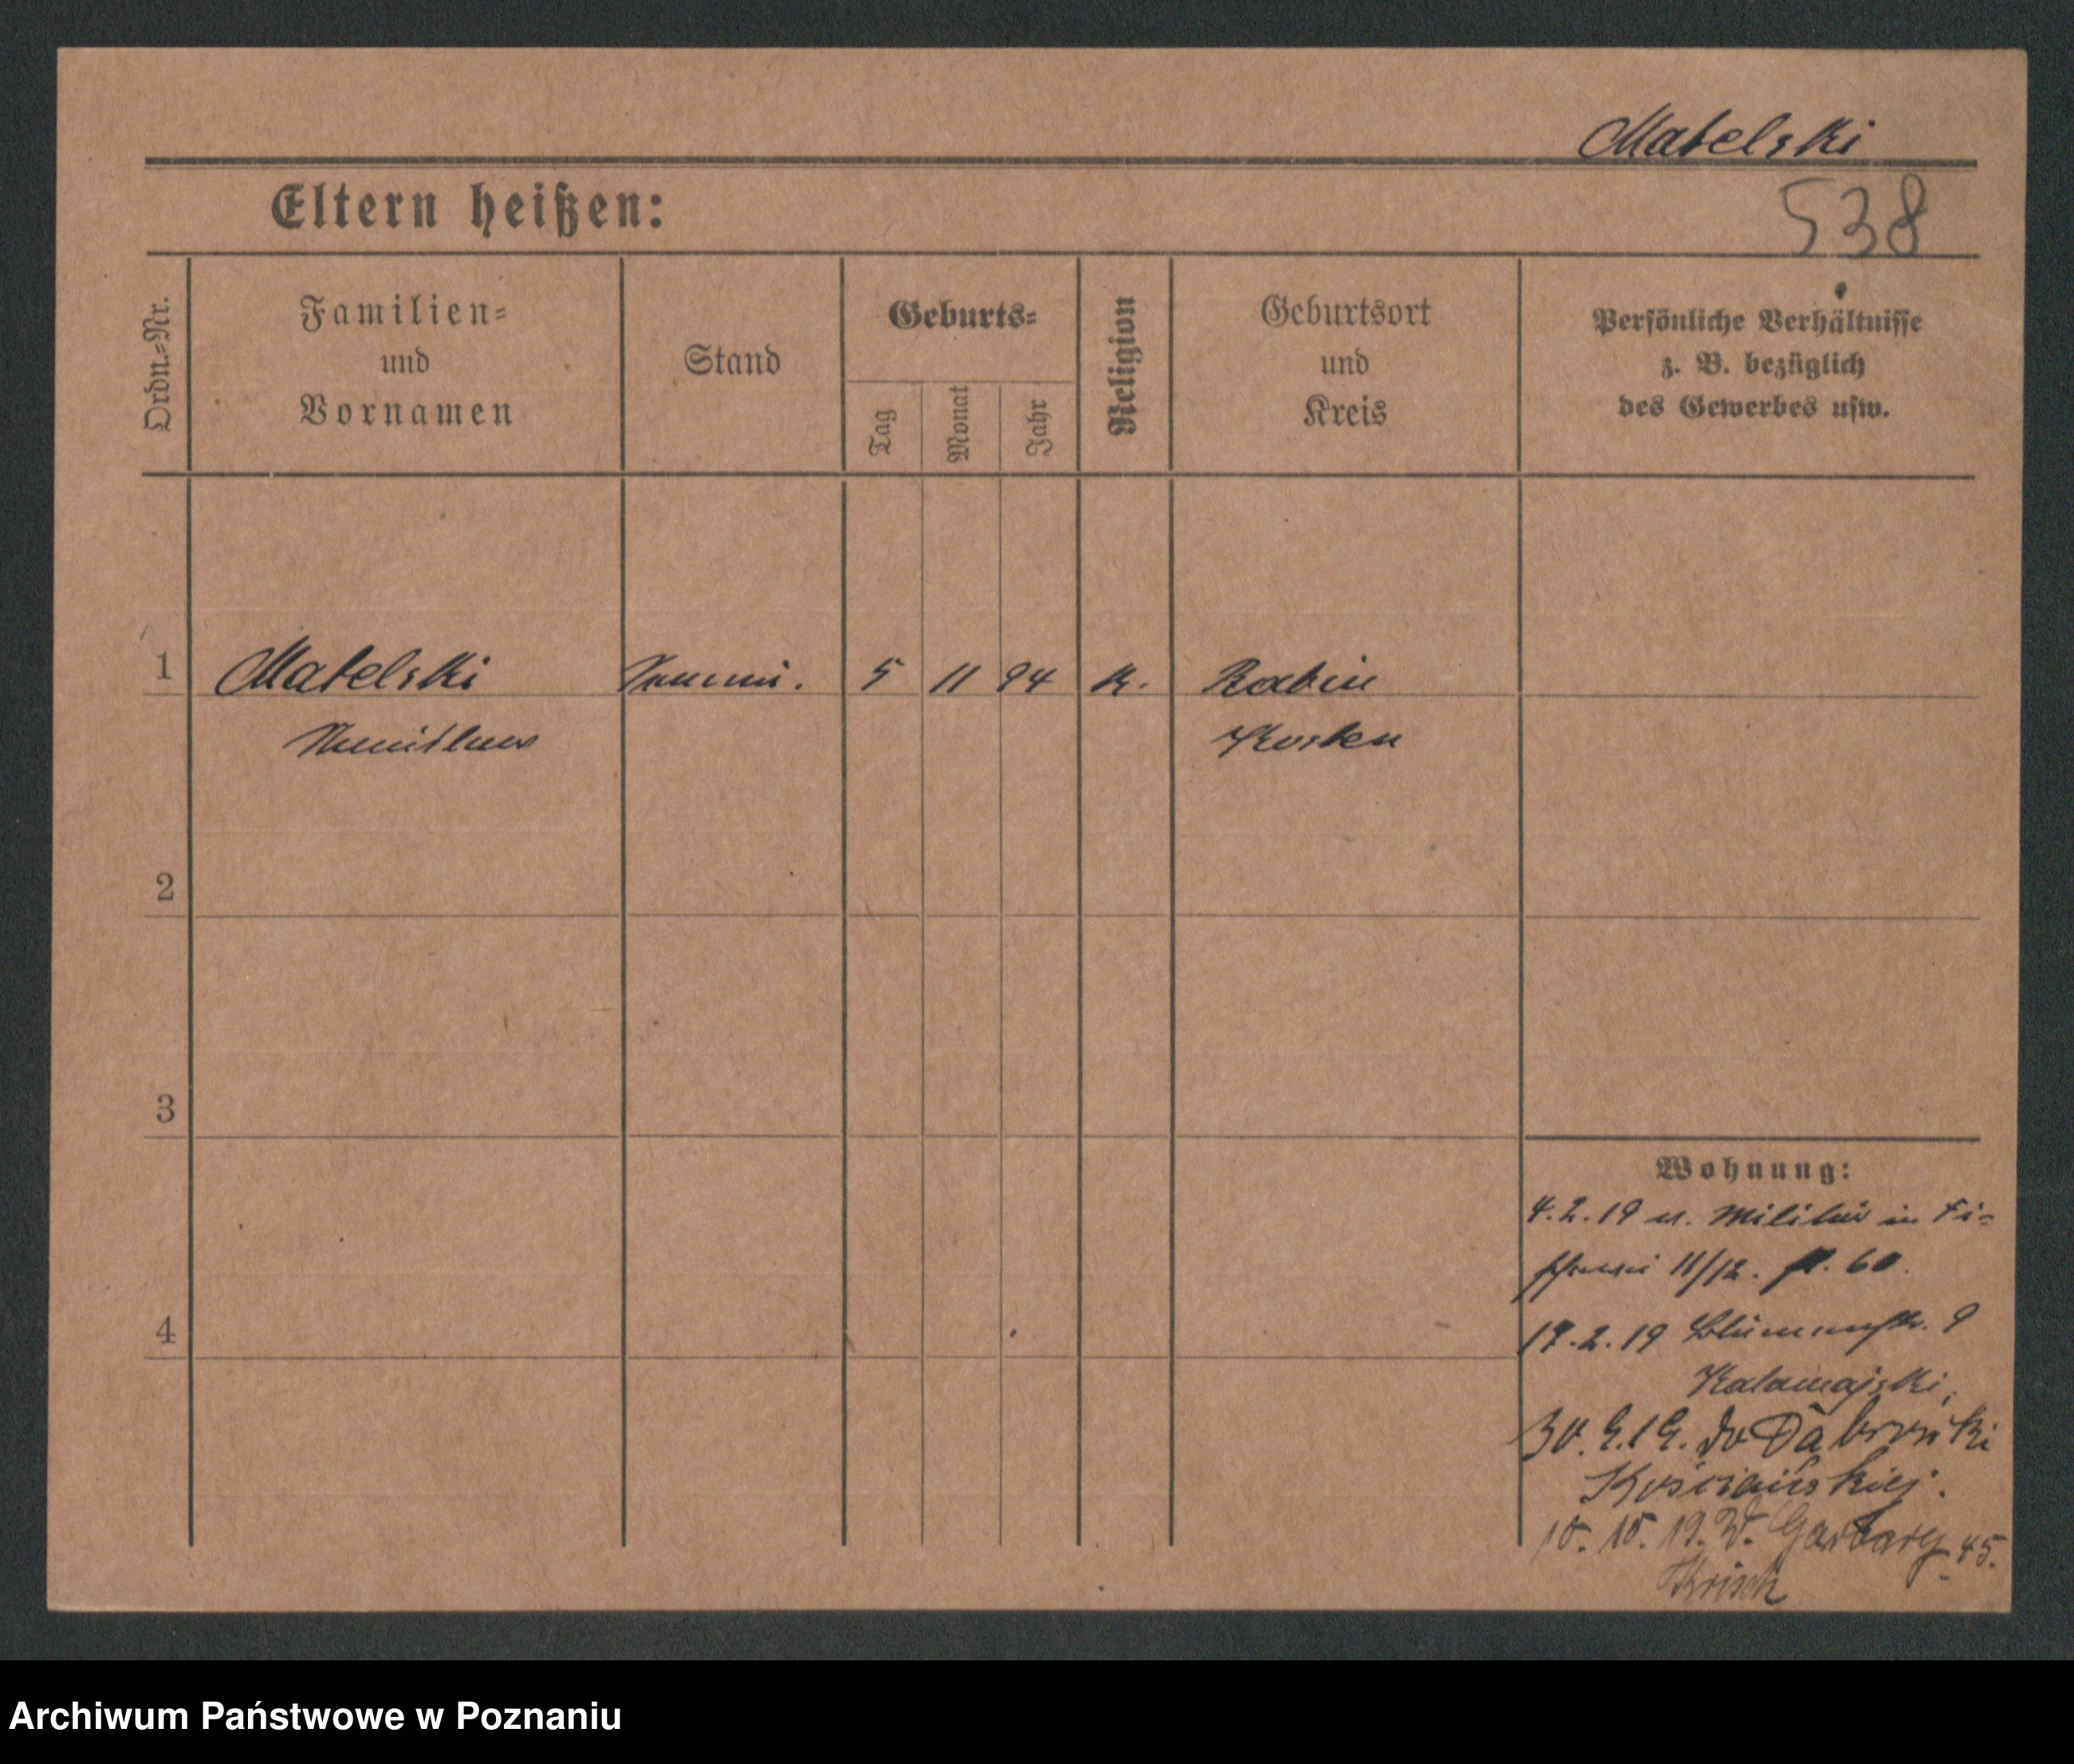 Matelski
Eltern heißen:
538
Ordn.-Nr.
Familien-
und
Vornamen
Stand
Geburts-
Tag
Monat
Jahr
Religion
Geburtsort
und
Kreis
Persönliche Verhältnisse
z. B. bezüglich
des Gewerbes usw.
1 Matelski 5 11 94 K. Rabin
Kosten
2
3
4
Wohnung:
4.2.19 u. Militär in
11/12. 60.
17.2.19 9
Kalamajski,
30. do
10.10.19. W. Garbary 45.
Archiwum Państwowe w Poznaniu